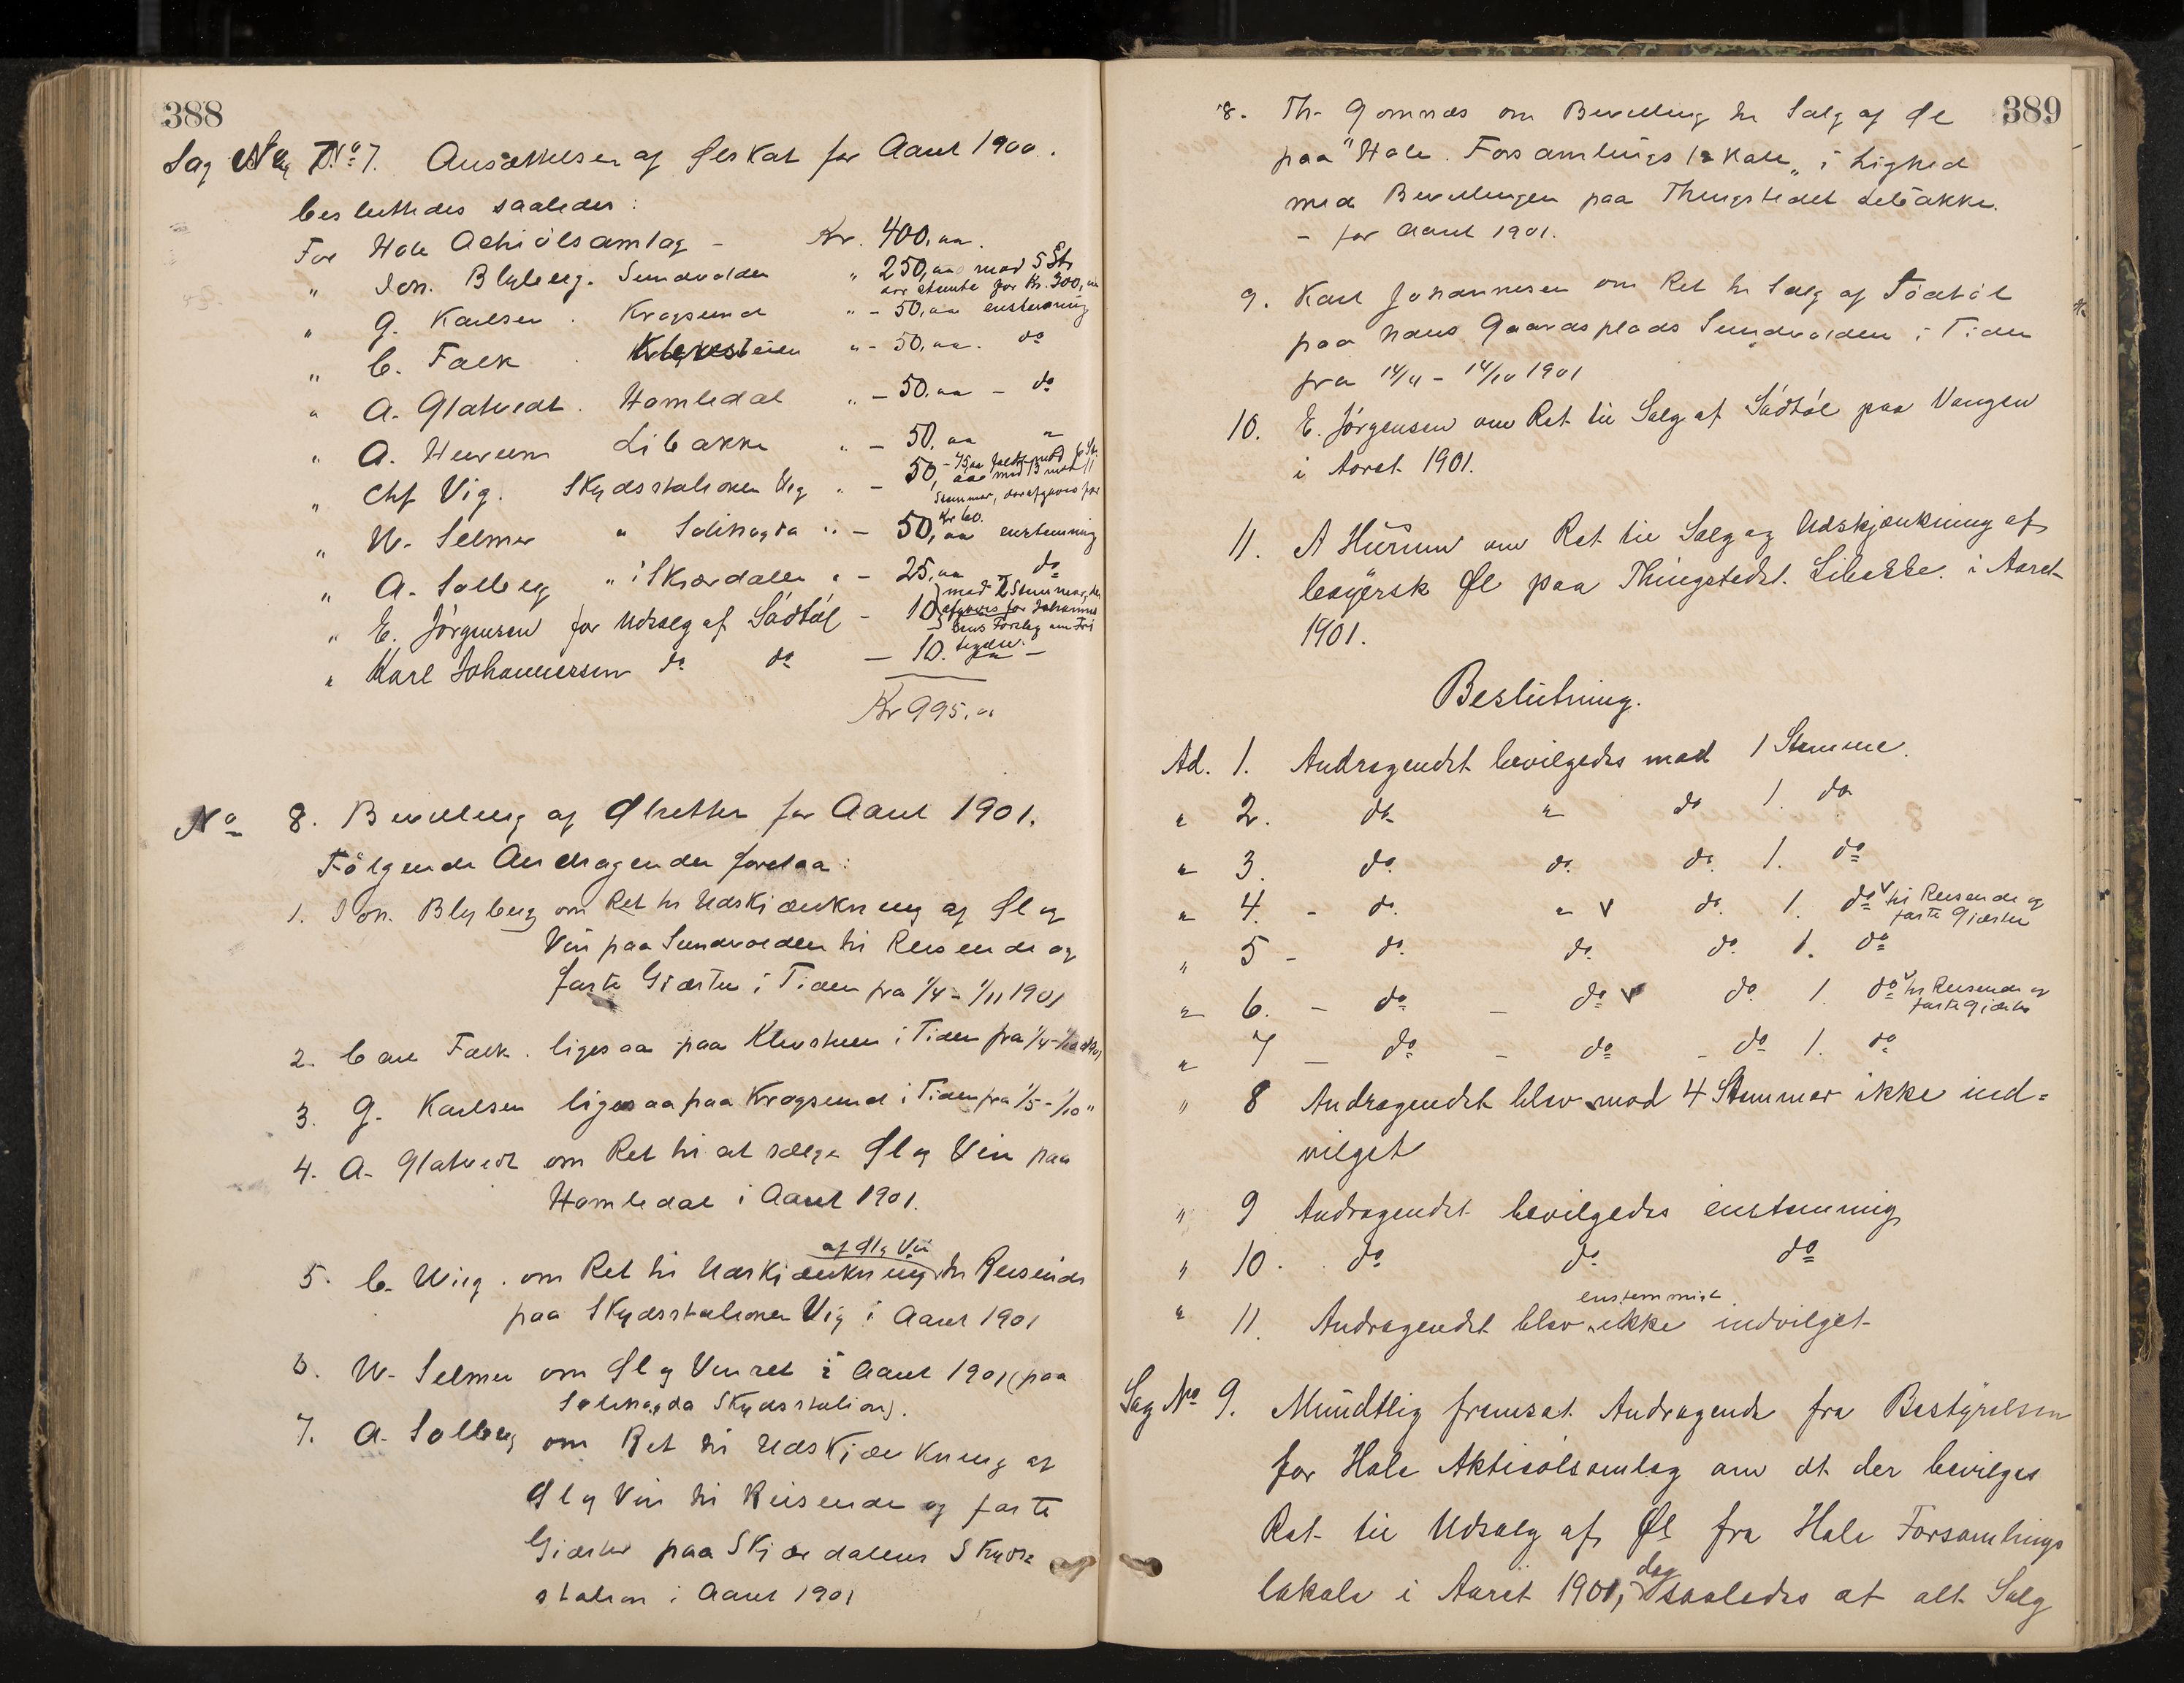 388
Sag No 7. Ansættelsen af Ølskat for Aaret 1900.
besluttedes saaledes:
For Hole Actiølsamlag - Kr. 400,00.
" Jon. Blyberg. Sundvolden " 250,00 mod 5 St.
der stemte for Kr. 300,00
" G. Karlsen. Krogsund " - 50,00 enstemmig
" C. Falk. Klevsteien " - 50,00. do
" A. Glatvedt. Homledal " - 50,00 - do
" A. Hurum Libakke " - 50,00 "
" Chf Vig. Skydsstationen Vig " - 50,
Stemmer, der afgaves for
Kr 60.
" W. Selmer " Solihøgda " - 50,00 enstemmig
" A. Solberg " i Skjærdalen " - 25,00 - do
" E. Jørgensen for Udsalg af Sødtøl - 10 mod 2 Stemmer, der
afgaves for Johannes
sens Forslag om Fri
tagelse.
" Karl Johannessen do do - 10.
Kr 995,00
No 8. Bevilling af Ølretter for Aaret 1901.
Følgende Andragender forelaa:
1. Jon. Blyberg om Ret til Udskjænkning af Øl og
Vin paa Sundvolden til Reisende og
faste Gjæster i Tiden fra 1/4 - 1/11 1901
2. Carl Falk. ligesaa paa Klevsteen i Tiden fra 1/4 - 1/10 1901
3. G. Karlsen ligesaa paa Krogsund i Tiden fra 1/5 - 1/10 "
4. A. Glatvedt om Ret til at sælge Øl og Vin paa
Homledal i Aaret 1901.
af Øl & Vin
5. C. Wiig. om Ret til Udskjænkning til Reisende
paa Skydsstationen Vig i Aaret 1901
6. W. Selmer om Øl og Vinret i Aaret 1901 (paa
Solihøgda Skydsstation).
7. A. Solberg om Ret til Udskjænkning af
Øl og Vin til Reisende og faste
Gjæster paa Skjærdalens Skyds
station i Aaret 1901
389
8. Th. Gomnæs om Bevilling til Salg af Øl
paa "Hole Forsamlingslokale" i Lighed
med Bevillingen paa Thingstedet Libakke.
- for Aaret 1901.
9. Karl Johannesen om Ret til Salg af Sødtøl
paa hans Gaardsplads Sundvolden i Tiden
fra 14/4 - 14/10 1901
10. E. Jørgensen om Ret til Salg af Sødtøl paa Vangen
i Aaret 1901.
11. A Hurum om Ret til Salg og Udskjænkning af
bayersk Øl paa Thingstedet Libakke i Aaret
1901.
Beslutning.
Ad. 1. Andragendet bevilgedes mod 1 Stemme.
" 2. do " do 1. do
" 3. do. do. do. 1. do
" 4. - do. " v do. 1. do v til Reisende og
faste Gjæster
" 5 - do. do. do. 1. do
" 6. - do - do v do. 1. do v til Reisende og
faste Gjæster
" 7 - do - do - do 1. do
" 8 Andragendet blev mod 4 Stemmer ikke ind=
vilget
" 9 Andragendet bevilgedes enstemmig
" 10. do do do
enstemmigt
" 11. Andragendet blev ikke indvilget
Sag No 9. Mundtlig fremsat Andragende fra Bestyrelsen
for Hole Aktieølsamlag om at der bevilges
Ret til Udsalg af Øl fra Hole Forsamlings
dog
lokale i Aaret 1901, saaledes at alt Salg